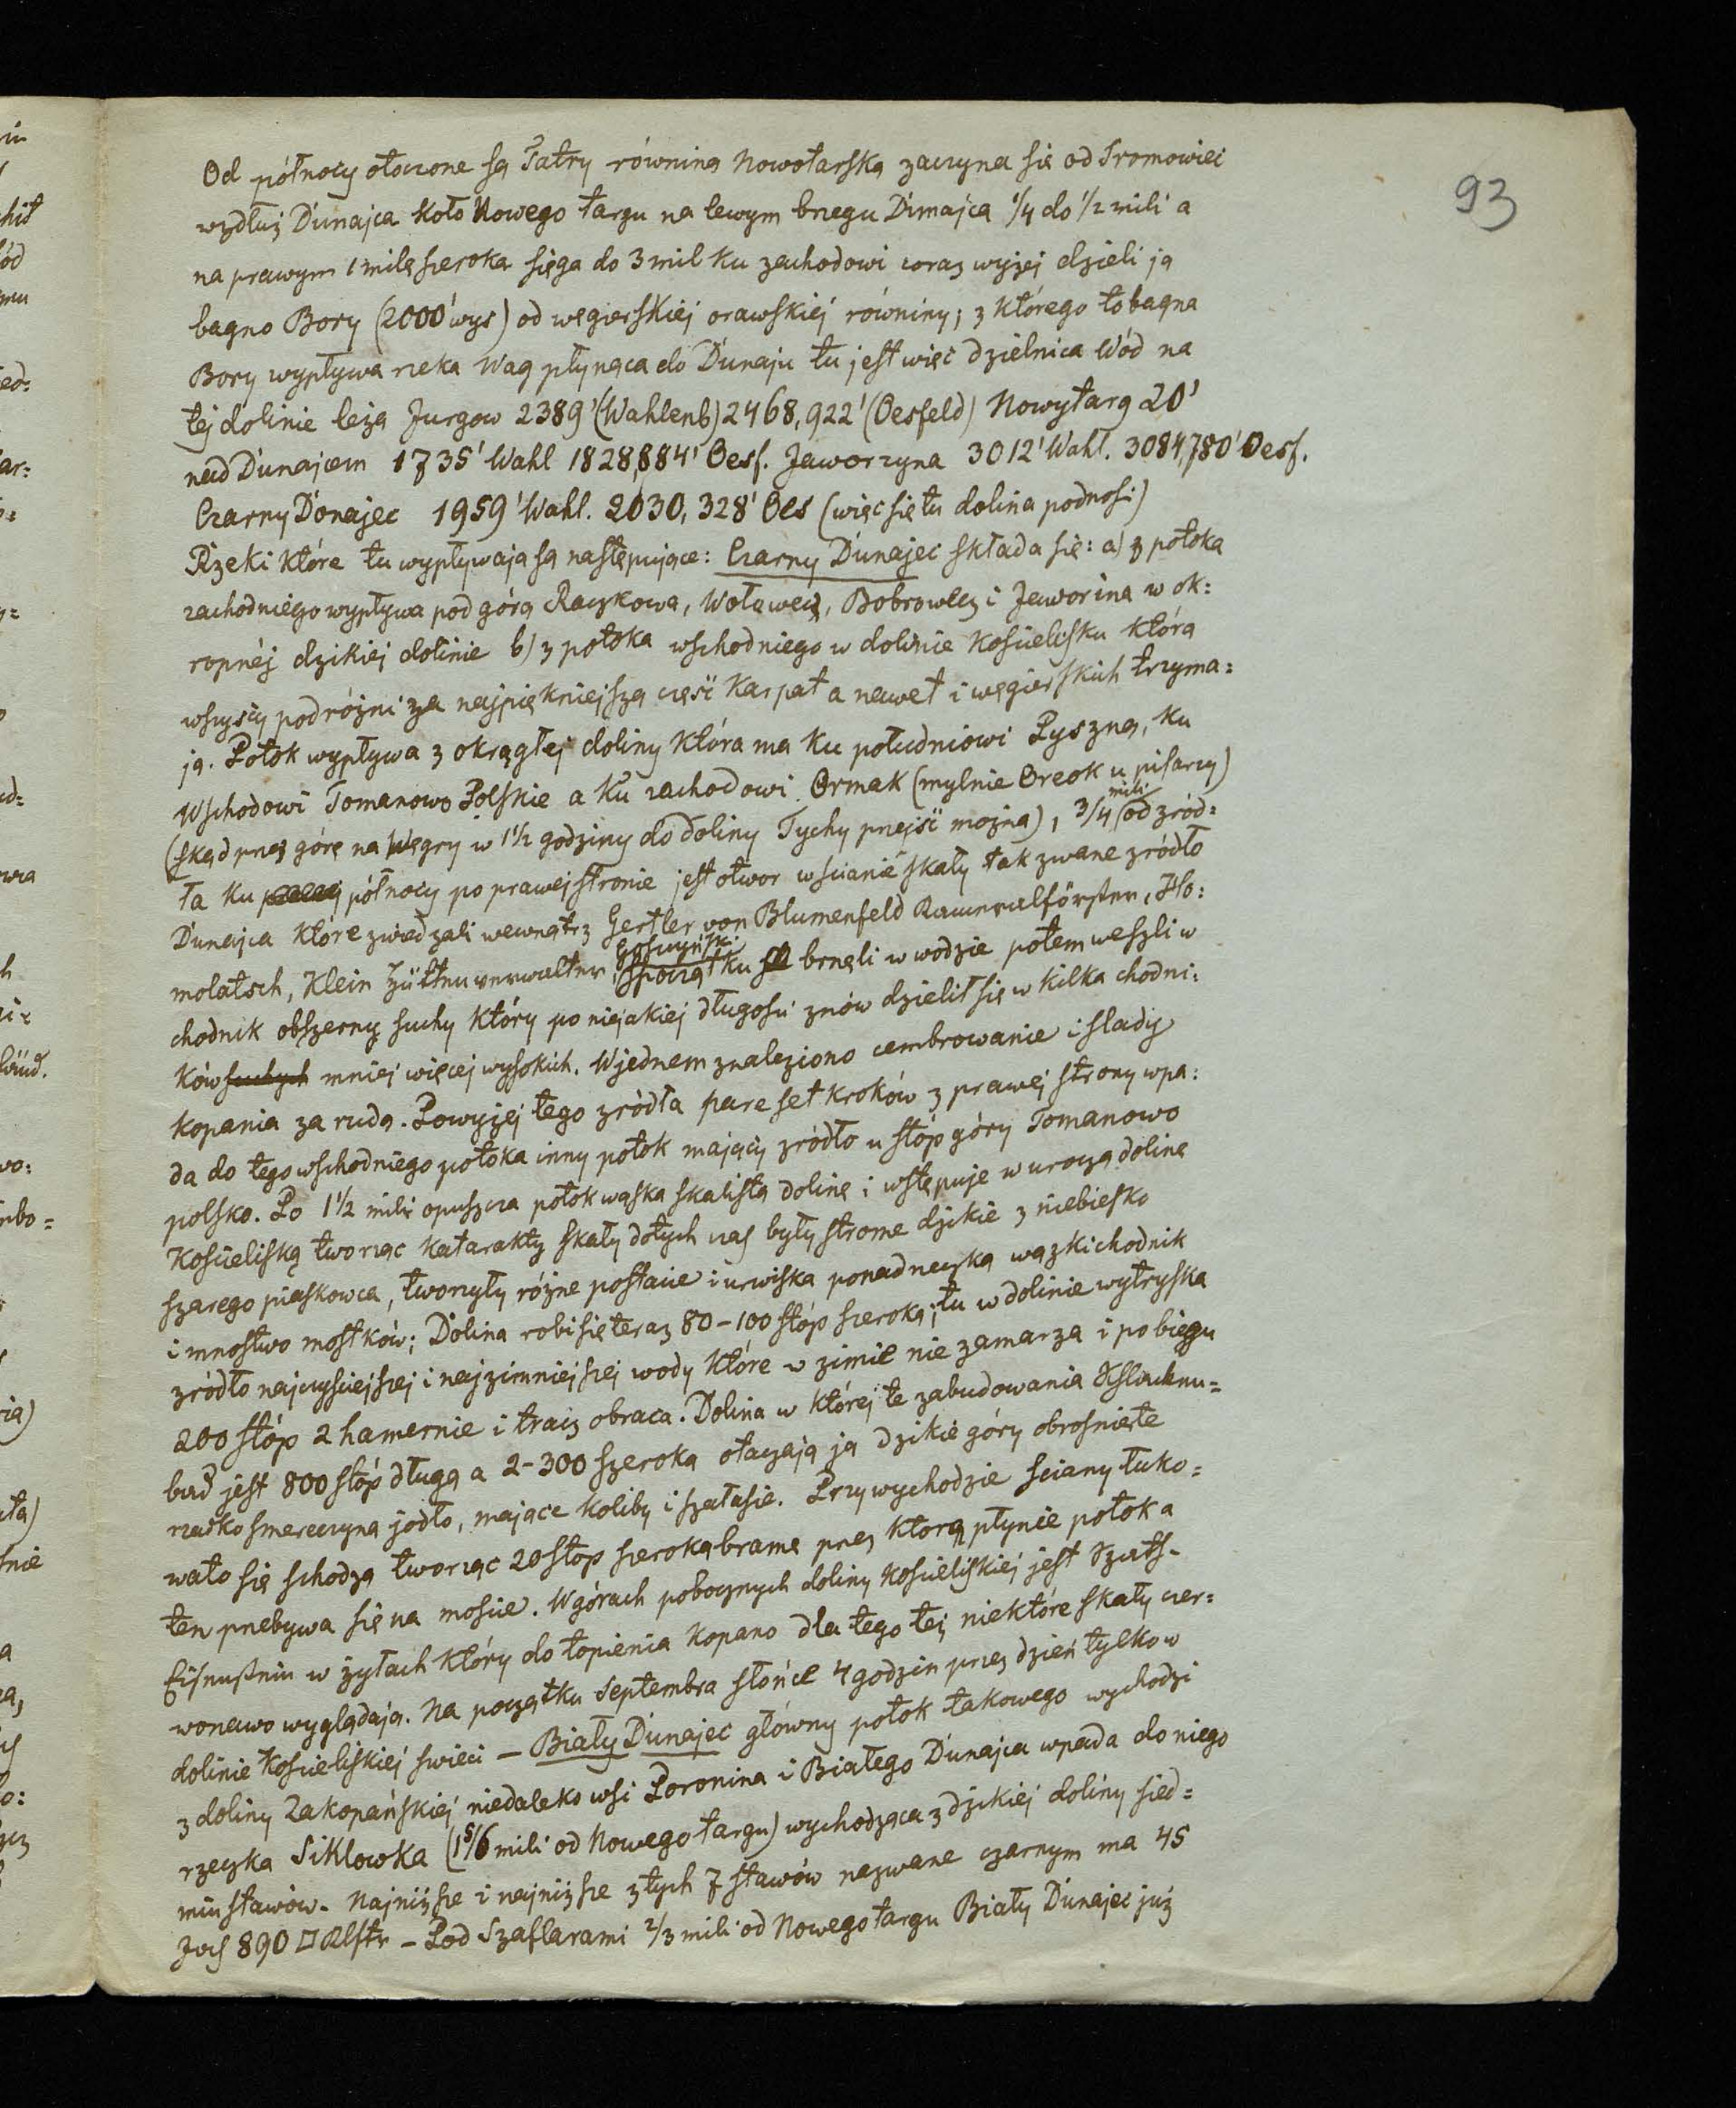 93
Od północy otoczone są Tatry równiną Nowotarską zaczyna się od Sromowiec
wzdłuż Dunajca koło Nowego targu na lewym brzegu Dunajca 1/4 do 1/2 mili a
na prawym 1 milę szeroka sięga do 3 mil ku zachodowi coraz wyżej dzieli ją
bagno Bory (2000' wys) od węgierskiej orawskiej równiny; z którego to bagna
Bory wypływa rzeka Wag płynąca do Dunaju tu jest więc dzielnica Wód na
tej dolinie leżą Jurgow 2389' (Wahlenb) 2468,922' (Oesfeld) Nowytarg 20'
nad Dunajcem 1735' Wahl 1828,884' Oesf. Jaworzyna 3012' Wahl. 3084,780' Oesf.
Czarny Donajec 1959' Wahl. 2030,328' Oes (więc się tu dolina podnosi)
Rzeki które tu wypływają są następujące: Czarny Dunajec składa się: a) z potoka
zachodniego wypływa pod górą Raczkowa, Wołowecz, Bobrowiecz i Jaworina w ok=
ropnéj dzikiej dolinie b) z potoka wschodniego w dolinie Kościelisku którą
wszyscy podróżni za najpiękniejszą część Karpat a nawet i węgierskich trzyma=
ją. Potok wypływa z okrągłej doliny która ma ku południowi Pyszną, ku
Wschodowi Tomanowo Polskie a ku zachodowi Ormak (mylnie Oreok u pisarzy)
(skąd przez górę na Węgry w 1 1/2 godziny do doliny Tychy przejść można), 3/4 mili od zród=
ła ku północy po prawej stronie jest otwor w scianie skały tak zwane zródło
Dunajca które zwiedzali wewnątrz Gertler von Blumenfeld Kameralförster, Ho=
molatsch, Klein Hüttenverwalter, Goszczyński spoczątku brnęli w wodzie potem weszli w
chodnik obszerny suchy który po niejakiej długości znów dzielił się w kilka chodni=
ków suchych mniej więcej wysokich. W jednem znaleziono cembrowanie i slady
kopania za rudą. Powyżej tego zródła pare set kroków z prawej strony wpa=
da do tego wschodniego potoka inny potok mający zródło u stóp góry Tomanowo
polsko. Po 1 1/2 mili opuszcza potok wąską skalistą dolinę i wstępuje w uroczą dolinę
Kościeliską tworząc katarakty skały dotych czas były strome dzikie z niebiesko
szarego piaskowca, tworzyły różne postacie i urwiska ponad rzeczką wązki chodnik
i mnostwo mostków; Dolina robi się teraz 80-100 stóp szeroką; tu w dolinie wytryska
zródło najczyściejszej i najzimniejszej wody które w zimie nie zamarza i po biegu
200 stóp 2 hamernie i tracz obraca. Dolina w której te zabudowania
jest 800 stóp długą a 2-300 szeroka otaczają ją dzikie góry obrosnięte
rzadko smereczyną jodło, mające koliby i szałasie. Przy wychodzie sciany łuko=
wato się schodzą tworząc 20 stop szeroką bramę przez którą płynie potok a
ten przebywa się na moscie. W górach pobocznych doliny Kościeliskiej jest
w żyłach który do topienia kopano dla tego też niektóre skały czer=
wonawo wyglądają. Na początku Septembra słońce 4 godzin przez dzień tylko w
dolinie Kościeliskiej swieci - Biały Dunajec główny potok takowego wychodzi
z doliny Zakopańskiej niedaleko wsi Poronina i Białego Dunajca wpada do niego
rzeczka Siklowka (1 5/6 mili od Nowego targu) wychodząca z dzikiej doliny sied=
miu stawów. Najniższe i najniższe z tych 7 stawów nazwane czarnym ma 45
Joch 890 □Klftr - Pod Szaflarami 2/3 mili od Nowego targu Biały Dunajec już